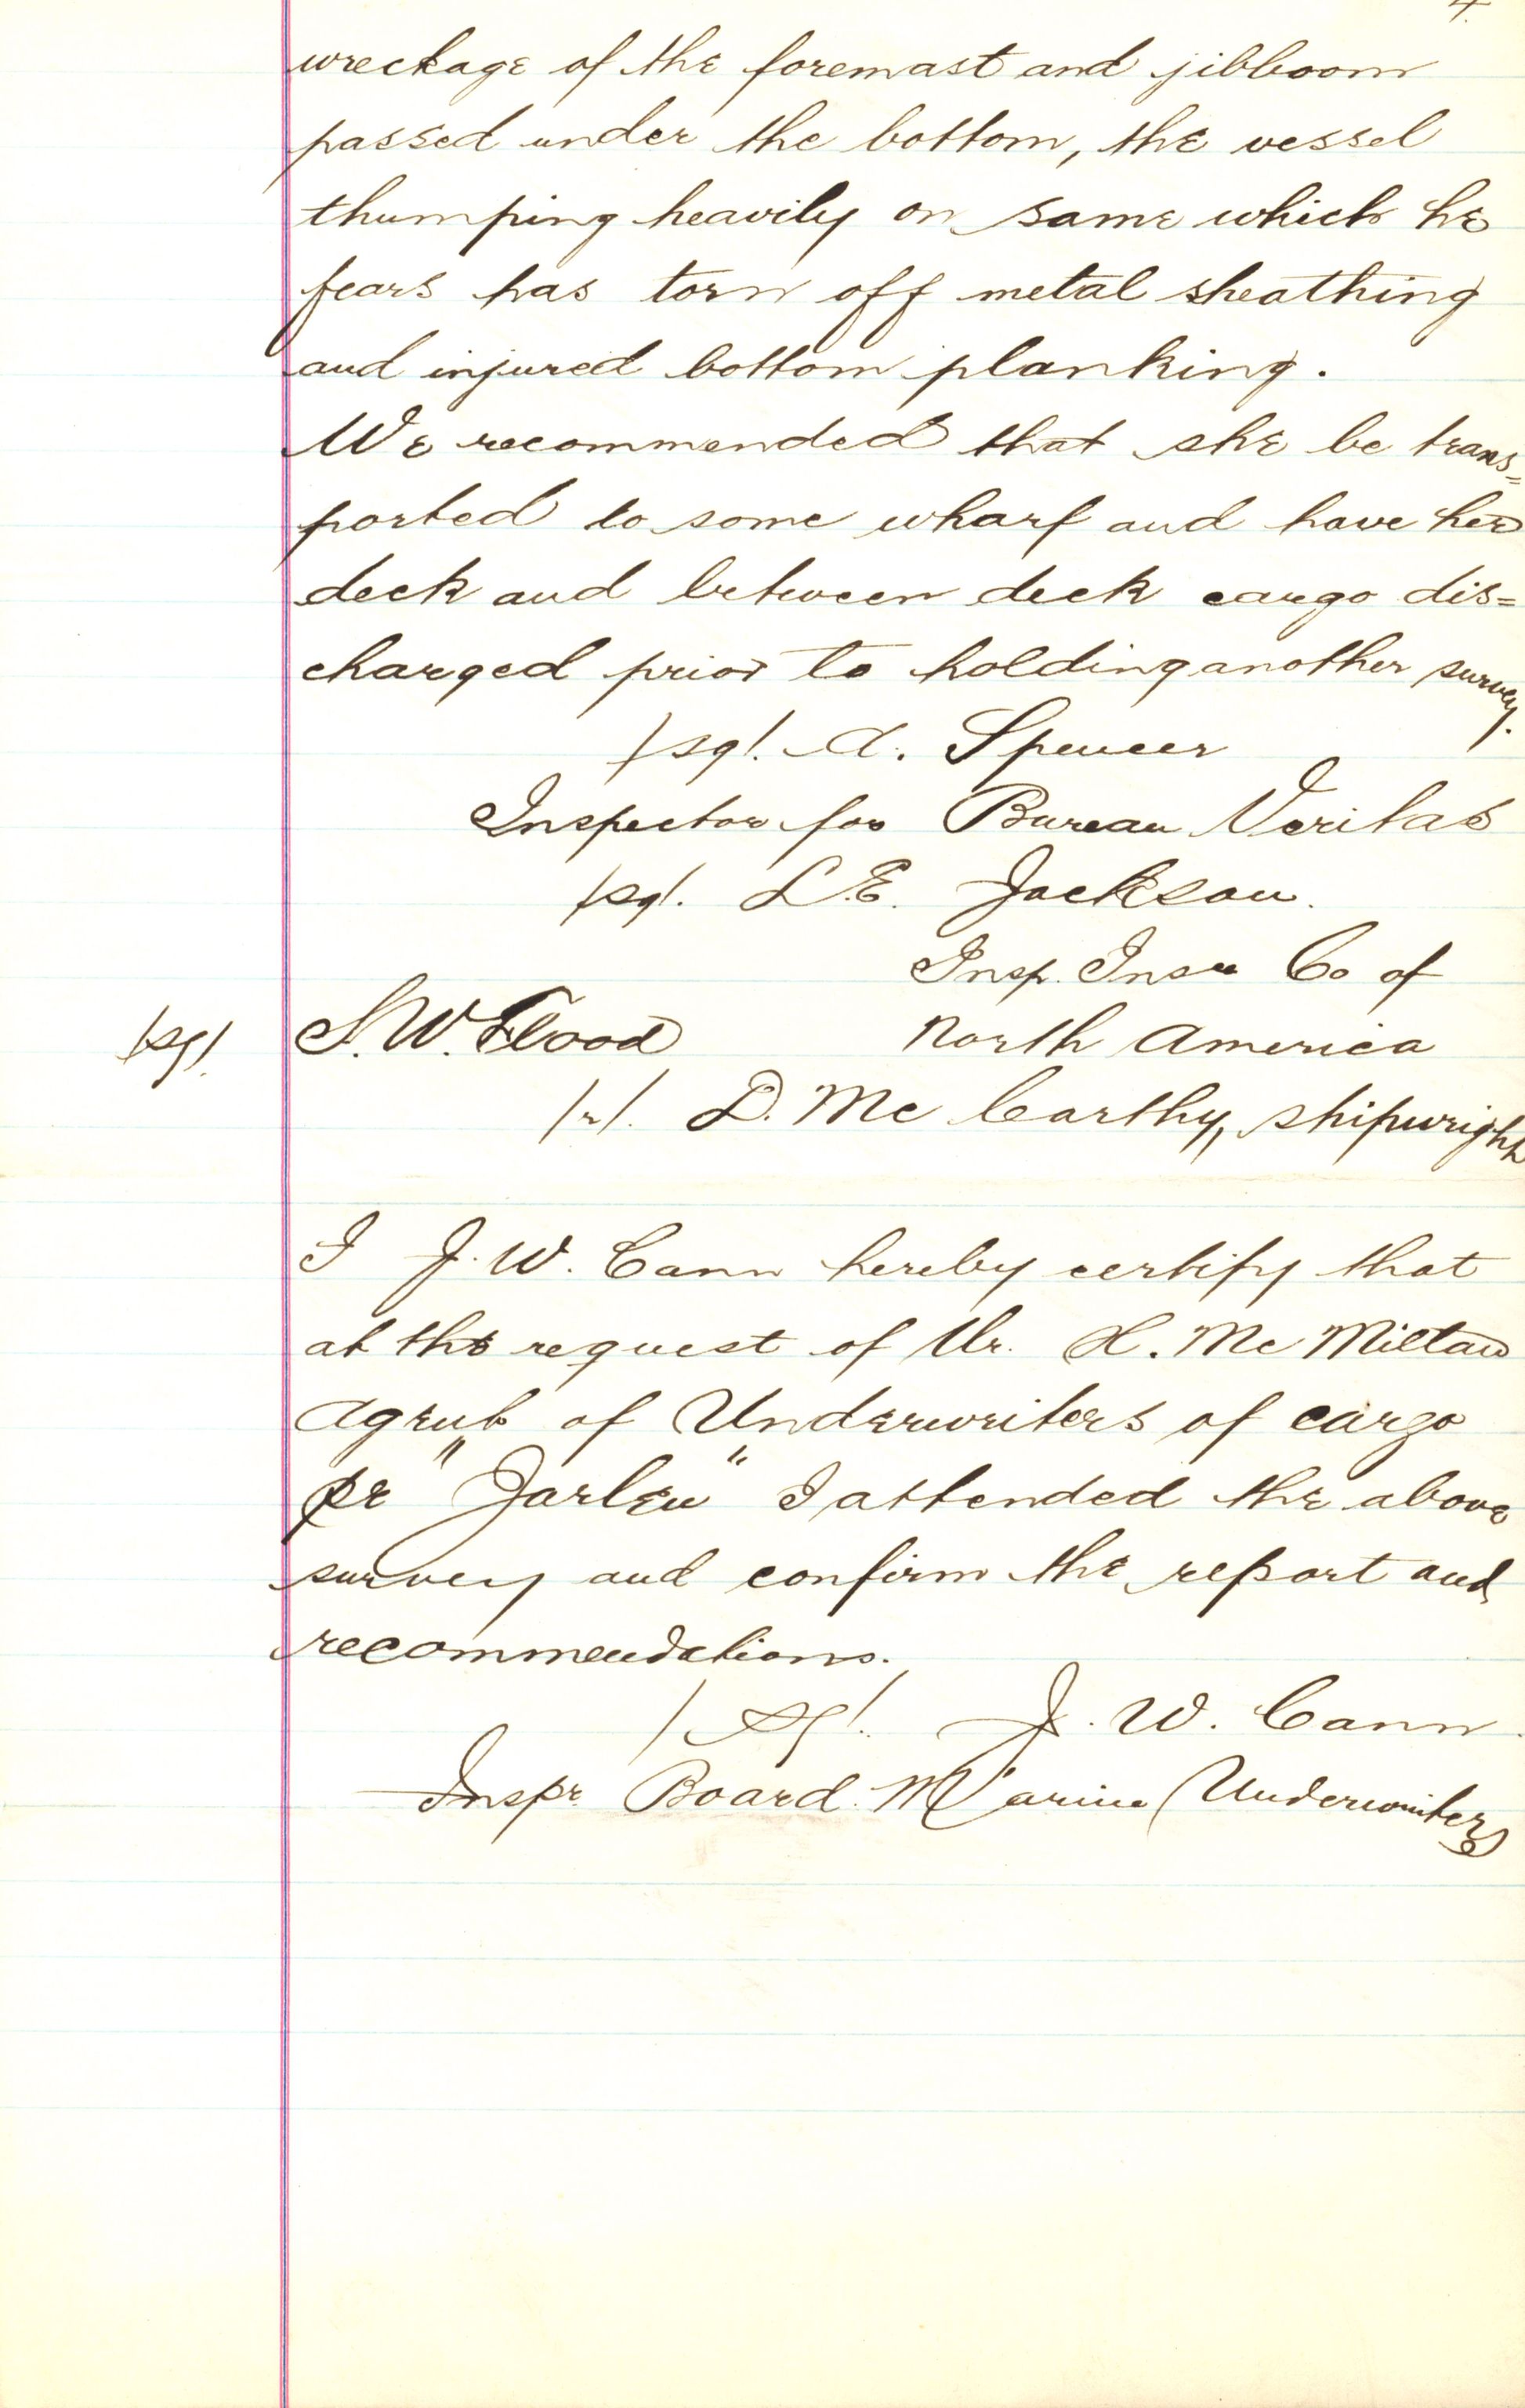 4.
wreckage of the foremast and jibboom
passed under the bottom, the vessel
thumping heavily on same which he
fears has torn off metal sheathing
and injured bottom planking.
We recommended that she be trans=
ported to some wharf and have her
deck and between deck cargo dis=
charged prior to holding another survey.
/sg/. A. Spencer
Inspector for Bureau Veritas
/sg/. L.E. Jackson.
Insp. Insce Co of
/sg/. S.W. Flood North America
/"/. D. Mc Carthy, shipwright
I J. W. Cann hereby certify that
at the request of Mr. H. Mc Millan
Agent of Underwriters of cargo
pr "Jarlen" I attended the above
survey and confirm the report and
recommendations.
/sg/. J. W. Cann.
Inspr Board Marine Underwriters